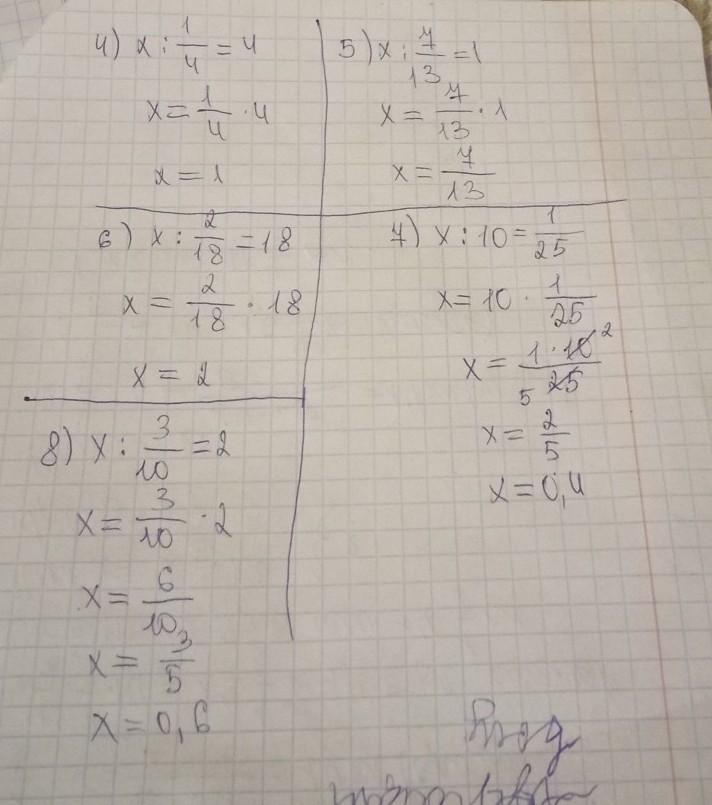 4) x : 1/4 = 4
x = 1/4 · 4
x = 1
5) x : 7/13 = 1
x = 7/13 · 1
x = 7/13
6) x : 2/18 = 18
x = 2/18 · 18
x = 2
7) x : 10 = 1/25
x = 10 · 1/25
x = 1 · 10 2 / 5 25
x = 2/5
x = 0,4
8) x : 3/10 = 2
x = 3/10 · 2
x = 6/10
x = 3/5
x = 0,6